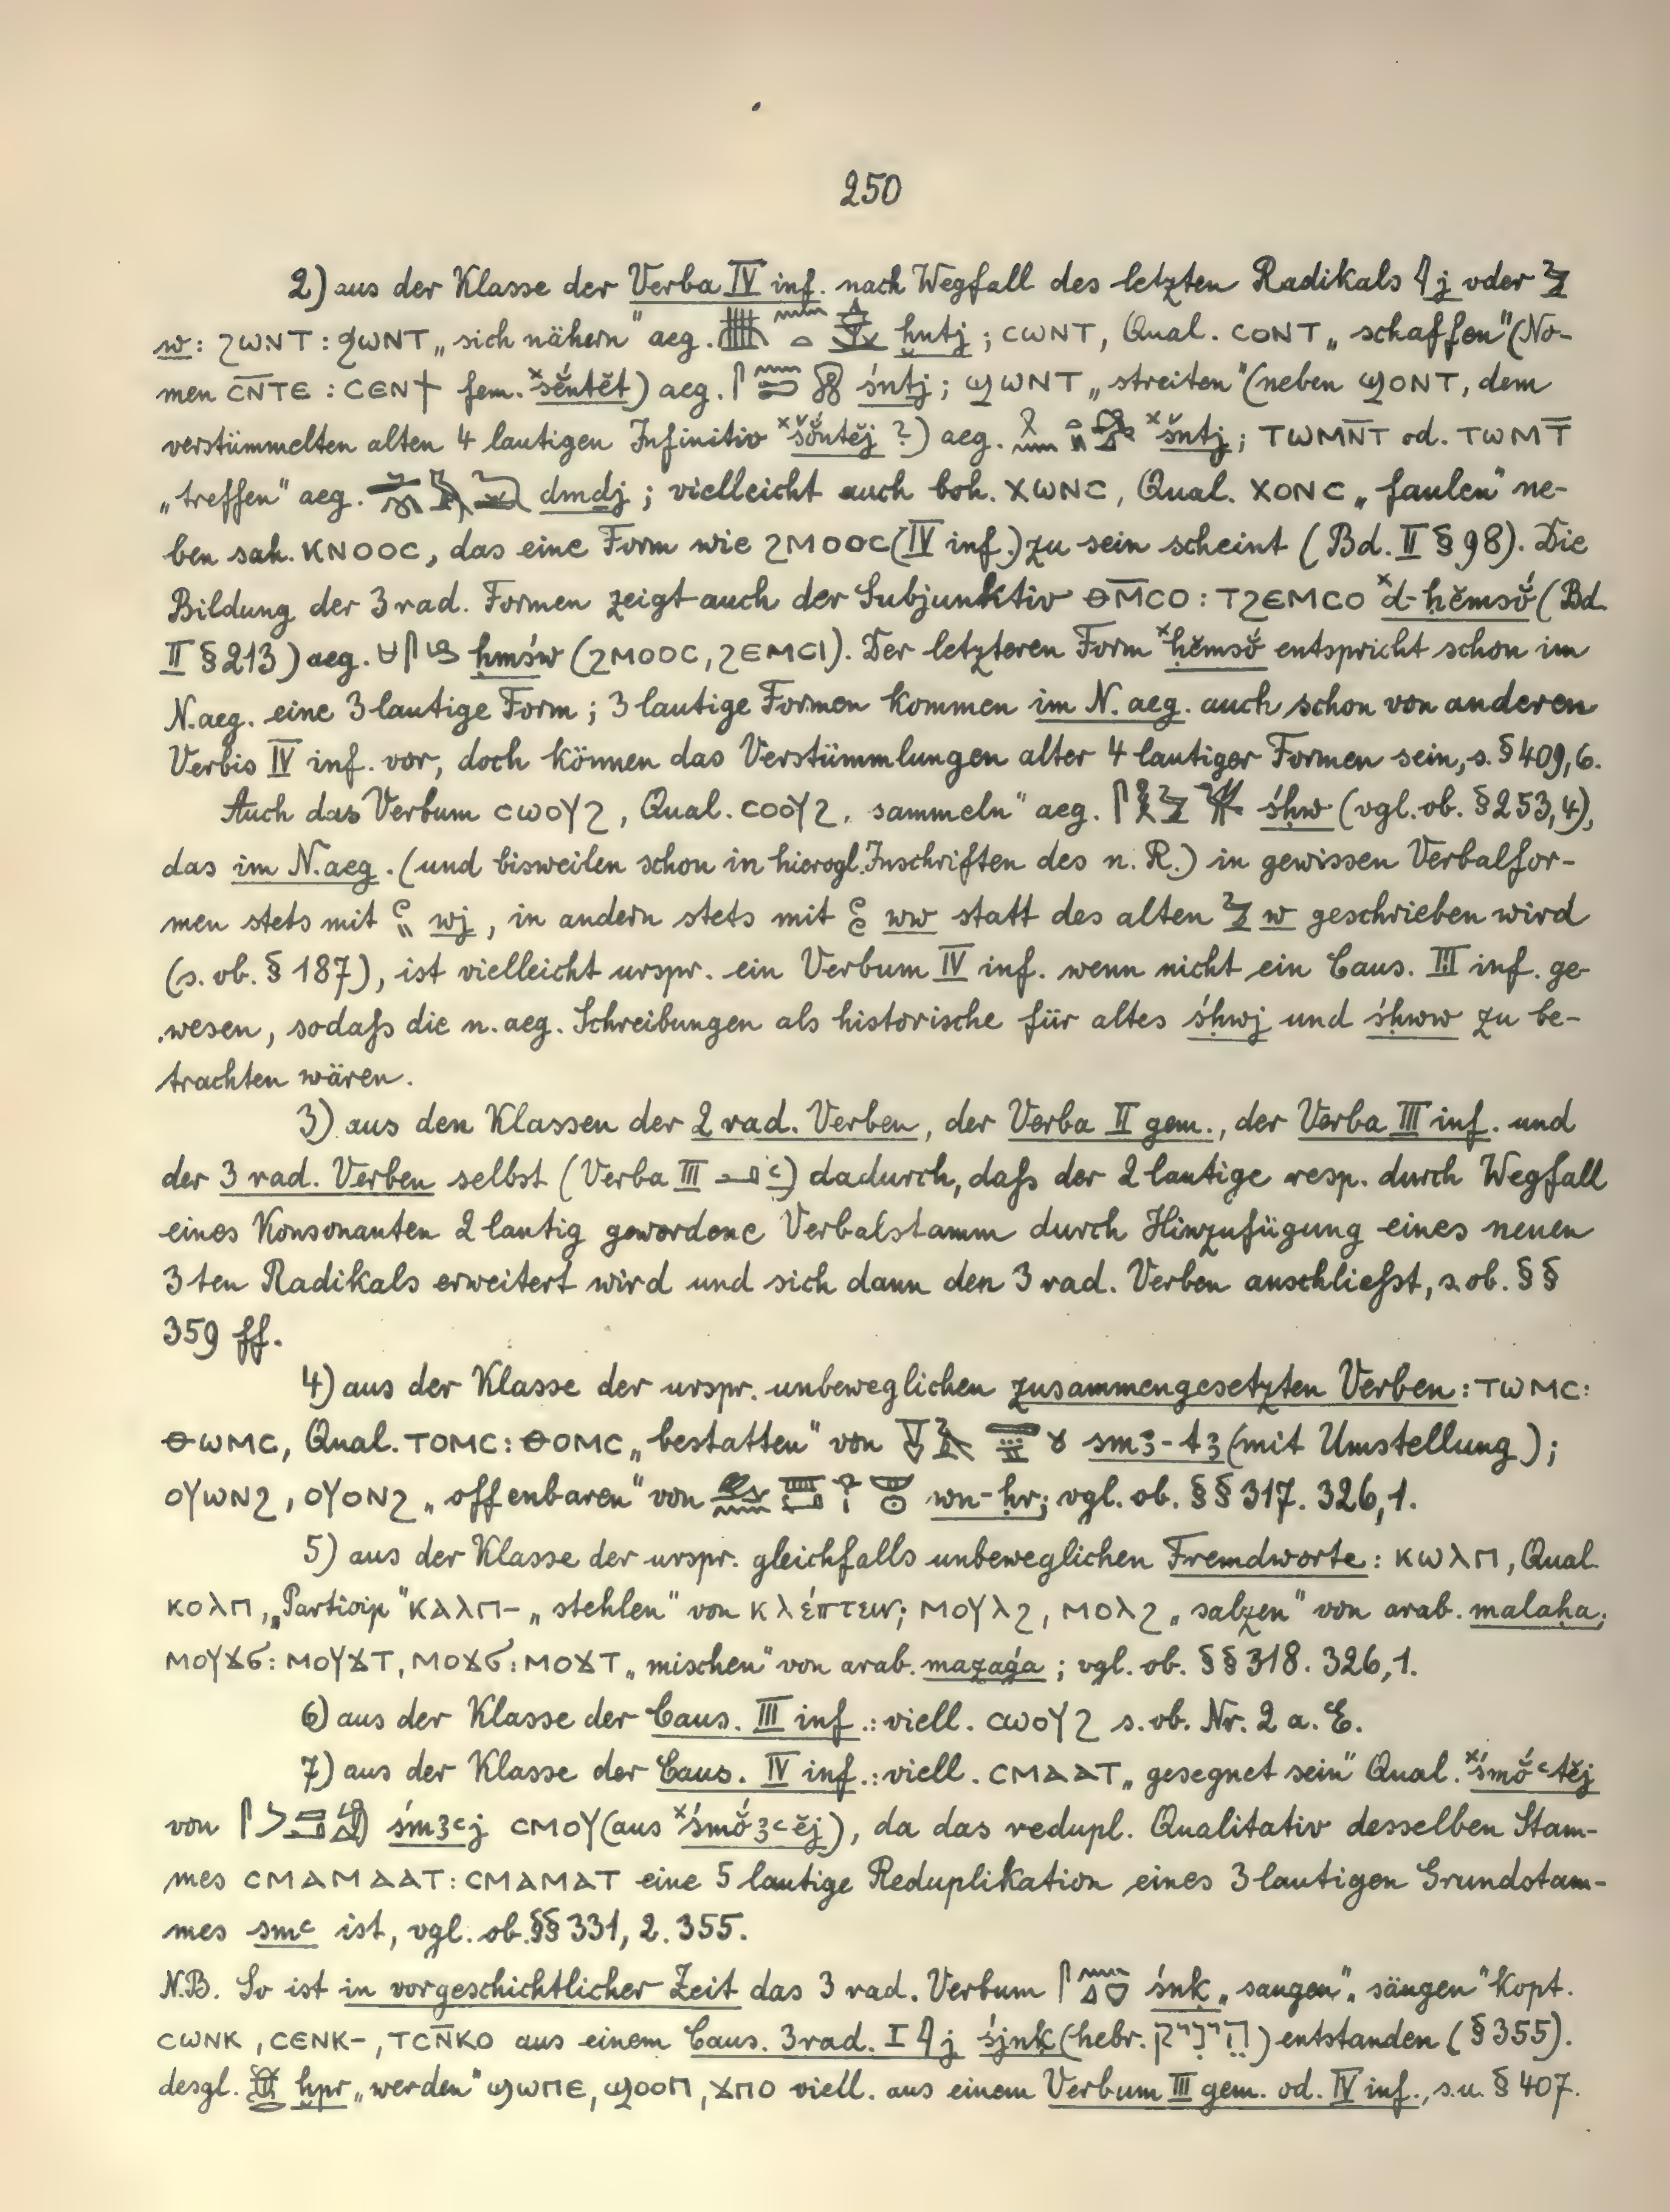 250
2) aus der Klasse der Verba IV inf. nach Wegfall des letzten Radikals 𓇋 j oder 𓅱
w: ϩⲱⲛⲧ : ϧⲱⲛⲧ „sich nähern" aeg. ẖntj ; ⲥⲱⲛⲧ, Qual. ⲥⲟⲛⲧ „schaffen" (No-
men ⲥⲛ̅ⲧⲉ : ⲥⲉⲛϯ fem. ˣsĕ́ntĕt) aeg. śntj ; ϣⲱⲛⲧ „streiten" (neben ϣⲟⲛⲧ, dem
verstümmelten alten 4 lautigen Infinitiv ˣšŏ́ntĕj ?) aeg. ˣšntj ; ⲧⲱⲙⲛ̅ⲧ od. ⲧⲱⲙⲧ̅
„treffen" aeg. dmdj ; vielleicht auch boh. ⲭⲱⲛⲥ, Qual. ⲭⲟⲛⲥ „faulen" ne-
ben sah. ⲕⲛⲟⲟⲥ, das eine Form wie ϩⲙⲟⲟⲥ (IV inf.) zu sein scheint (Bd. II § 98). Die
Bildung der 3 rad. Formen zeigt auch der Subjunktiv ⲑⲙ̅ⲥⲟ : ⲧϩⲉⲙⲥⲟ ˣd-ḥĕmsŏ́ (Bd.
II § 213) aeg. ḥmśw (ϩⲙⲟⲟⲥ, ϩⲉⲙⲥⲓ). Der letzteren Form ˣḥĕmsŏ́ entspricht schon im
N.aeg. eine 3 lautige Form ; 3 lautige Formen kommen im N. aeg. auch schon von anderen
Verbis IV inf. vor, doch können das Verstümmlungen alter 4 lautiger Formen sein, s. § 409,6.
Auch das Verbum ⲥⲱⲟⲩϩ, Qual. ⲥⲟⲟⲩϩ „sammeln" aeg. śḥw (vgl. ob. § 253,4),
das im N.aeg. (und bisweilen schon in hierogl. Inschriften des n. R.) in gewissen Verbalfor-
men stets mit wj, in andern stets mit ww statt des alten 𓅱 w geschrieben wird
(s. ob. § 187), ist vielleicht urspr. ein Verbum IV inf. wenn nicht ein Caus. III inf. ge-
wesen, sodaß die n. aeg. Schreibungen als historische für altes śḥwj und śḥww zu be-
trachten wären.
3) aus den Klassen der 2 rad. Verben, der Verba II gem., der Verba III inf. und
der 3 rad. Verben selbst (Verba III 𓂝 ꜥ) dadurch, daß der 2 lautige resp. durch Wegfall
eines Konsonanten 2 lautig gewordene Verbalstamm durch Hinzufügung eines neuen
3ten Radikals erweitert wird und sich dann den 3 rad. Verben anschließt, s. ob. §§
359 ff.
4) aus der Klasse der urspr. unbeweglichen zusammengesetzten Verben : ⲧⲱⲙⲥ :
ⲑⲱⲙⲥ, Qual. ⲧⲟⲙⲥ : ⲑⲟⲙⲥ „bestatten" von smꜣ-tꜣ (mit Umstellung) ;
ⲟⲩⲱⲛϩ, ⲟⲩⲟⲛϩ „offenbaren" von wn-ḥr ; vgl. ob. §§ 317. 326,1.
5) aus der Klasse der urspr. gleichfalls unbeweglichen Fremdworte : ⲕⲱⲗⲡ, Qual.
ⲕⲟⲗⲡ, „Particip" ⲕⲁⲗⲡ- „stehlen" von κλέπτειν ; ⲙⲟⲩⲗϩ, ⲙⲟⲗϩ „salzen" von arab. malaḥa ;
ⲙⲟⲩϫϭ : ⲙⲟⲩϫⲧ, ⲙⲟϫϭ : ⲙⲟϫⲧ „mischen" von arab. mazaǵa ; vgl. ob. §§ 318. 326,1.
6) aus der Klasse der Caus. III inf. : viell. ⲥⲱⲟⲩϩ s. ob. Nr. 2 a. E.
7) aus der Klasse der Caus. IV inf. : viell. ⲥⲙⲁⲁⲧ „gesegnet sein" Qual. ˣśmŏ́ꜥtĕj
von śmꜣꜥj ⲥⲙⲟⲩ (aus ˣśmŏ́ꜣꜥĕj), da das redupl. Qualitativ desselben Stam-
mes ⲥⲙⲁⲙⲁⲁⲧ : ⲥⲙⲁⲙⲁⲧ eine 5 lautige Reduplikation eines 3 lautigen Grundstam-
mes smꜥ ist, vgl. ob. §§ 331, 2. 355.
N.B. So ist in vorgeschichtlicher Zeit das 3 rad. Verbum śnḳ „saugen", „säugen" kopt.
ⲥⲱⲛⲕ, ⲥⲉⲛⲕ-, ⲧⲥⲛ̅ⲕⲟ aus einem Caus. 3 rad. I 𓇋 j śjnḳ (hebr. הֵינִיק) entstanden (§ 355).
desgl. ḫpr „werden" ϣⲱⲡⲉ, ϣⲟⲟⲡ, ϫⲡⲟ viell. aus einem Verbum III gem. od. IV inf., s. u. § 407.